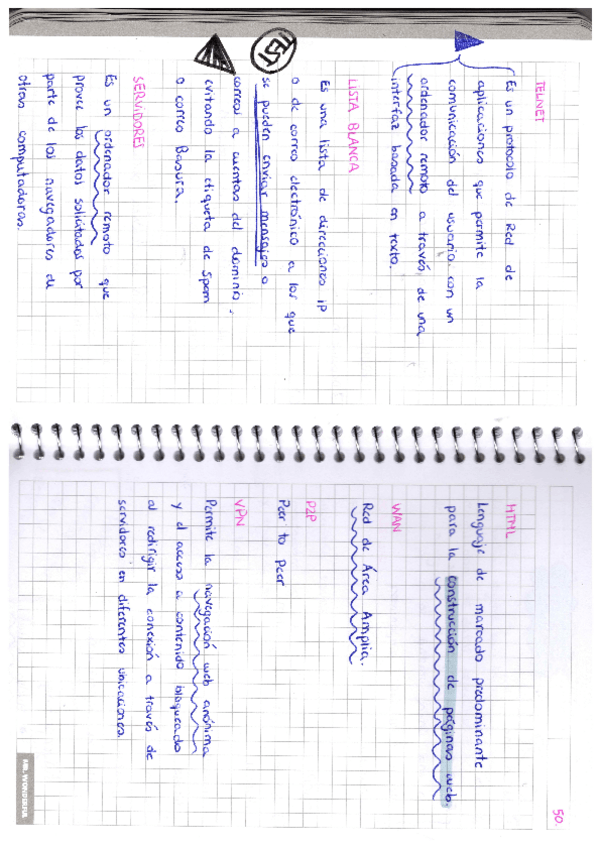 TELNET
Es un protocolo de Red de
aplicaciones que permite la
comunicación del usuario con un
ordenador remoto a través de una
interfaz basada en texto.
LISTA BLANCA
Es una lista de direcciones ip
o de correos electrónico a los que
se pueden enviar mensajes o
correos a cuentas del dominio,
evitando la etiqueta de Spam
o correo Basura.
TEST
SERVIDORES
Es un ordenador remoto que
provee los datos solicitados por
parte de los navegadores de
otras computadoras.
50
HTML
Lenguaje de marcado predominante
para la construcción de páginas web.
WAN
Red de Área Amplia.
P2P
Peer to Peer
VPN
Permite la navegación web anónima
y el acceso a contenido bloqueado
al redirigir la conexión a través de
servidores en diferentes ubicaciones.
MR. WONDERFUL